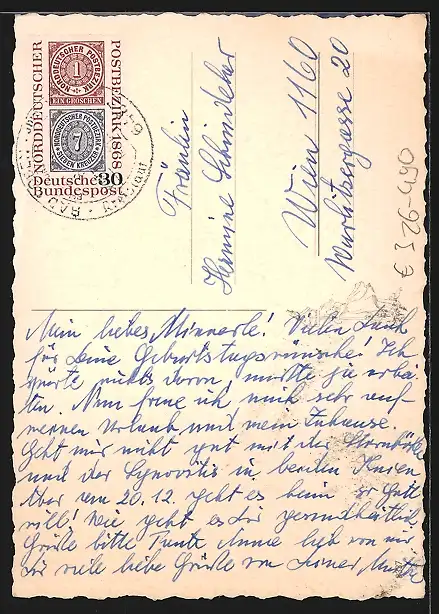 NORDDEUTSCHER
POSTBEZIRK 1868
NORDDEUTSCHER POSTBEZIRK
1
EIN GROSCHEN
NORDDEUTSCHER POSTBEZIRK
7
SIEBEN KREUZER
Deutsche 30
Bundespost
BAD
Fräulein
Hermine Schindleber
Wien 1160
Wurlitzergasse 20
£ 526-490
Mein liebes Minnerle! Vielen Dank
für Deine Geburtstagswünsche! Ich
spürte nichts davon, mußte ja arbei-
ten. Nun freue ich mich sehr auf
meinen Urlaub und mein Zuhause.
Geht mir nicht gut mit der
und der Synovitis in beiden Knien
Aber am 20.12. geht es heim so Gott
will! Wie geht es Dir gesundheitlich.
Grüße bitte Tante Anne lieb von mir
Dir viele liebe Grüße von Deiner